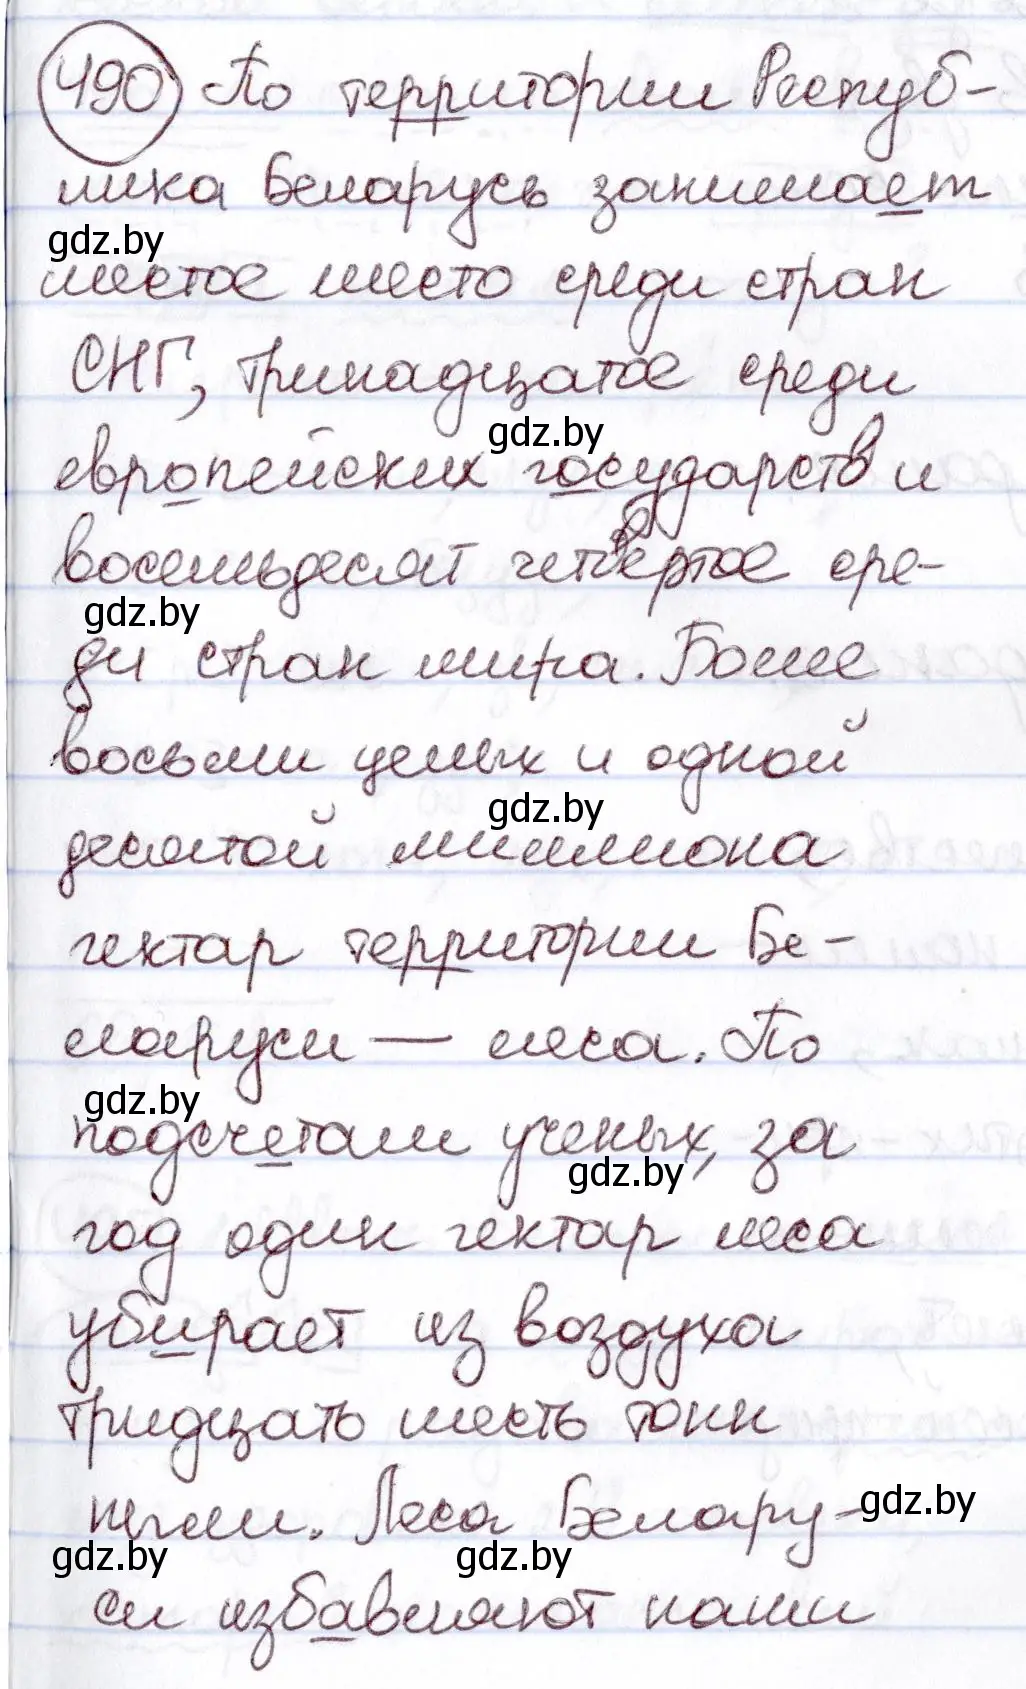 490 По территории Респуб-
лика Беларусь занимает
gdz.by
шестое место среди стран
СНГ, тринадцатое среди
gdz.by
европейских государств и
восемьдесят четвёртое сре-
gdz.by
ди стран мира. Более
восьми целых и одной
gdz.by
десятой миллиона
гектар территории Бе-
ларуси — леса. По
gdz.by
подсчетам ученых, за
gdz.by
год один гектар леса
убирает из воздуха
тридцать шесть тонн
gdz.by
пыли. Леса Белару-
gdz.by gdz.by
си избавляют наши